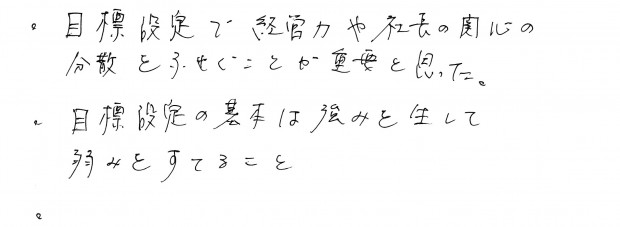 。目標設定で経営力や社長の関心の
分散をふせぐことが重要と思った。
。目標設定の基本は強みを生して
弱みをすてること
。